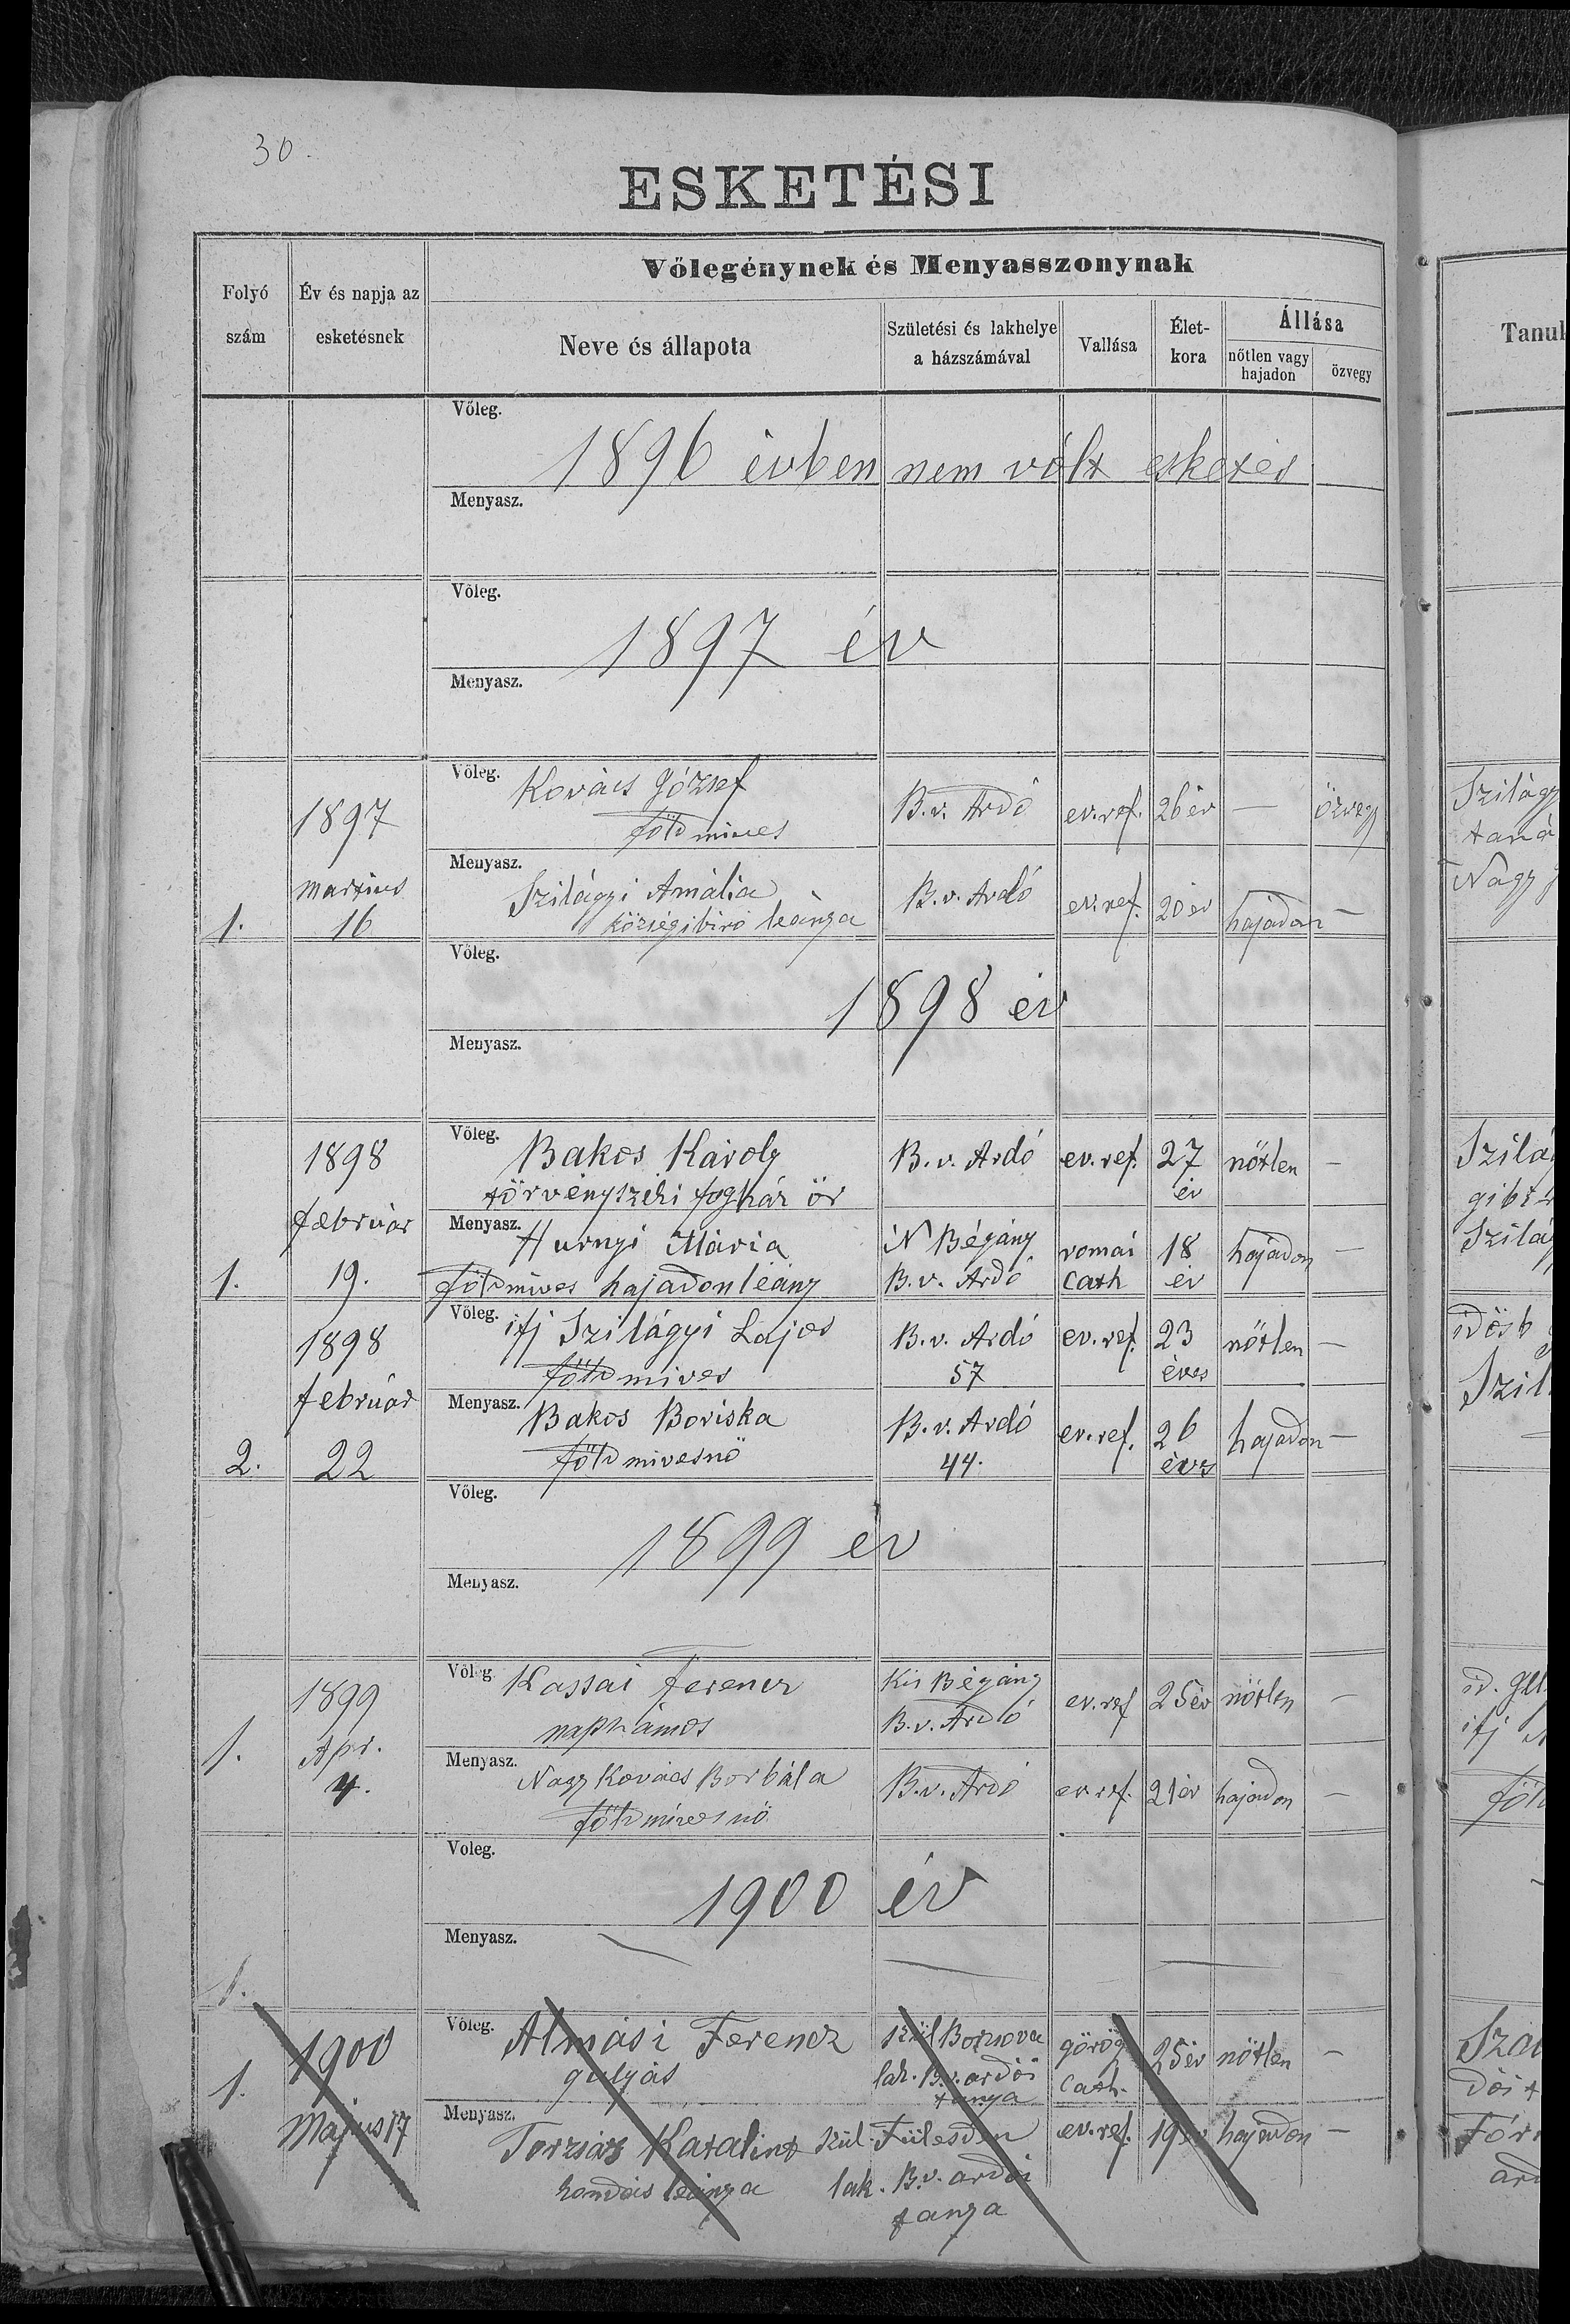 30.
ESKETÉSI
Folyó szám
Év és napja az esketésnek
Vőlegénynek és Menyasszonynak
Neve és állapota
Születési és lakhelye a házszámával
Vallása
Élet-kora
Állása
nőtlen vagy hajadon
özvegy
Tanuk
Vőleg.
1896 évben nem vólt esketés
Menyasz.
Vőleg.
1897 év
Menyasz.
1897
Vőleg. Kovács József B.v. Ardó ev. ref. 26 év — özvegy
földmives
Menyasz.
martius
Szilágyi Amália B.v. Ardó ev. ref. 20 év hajadon —
1. 16 községi biró leánya
Szilágy
Nagy
Vőleg.
1898 év
Menyasz.
1898
Vőleg. Bakos Károly B.v. Ardó ev. ref. 27 év nőtlen —
törvényszéki fogház őr
február
Menyasz. Hunyi Mária N Bégány romai 18 hajadon —
1. 19. földmives hajadonleány B.v. Ardó cath év
Szilá
Szilá
1898
Vőleg. ifj Szilágyi Lajos B.v. Ardó ev. ref. 23 nőtlen —
földmives 57 éves
február
Menyasz. Bakos Boriska B.v. Ardó ev. ref. 26 hajadon —
2. 22 földmivesnö 44. éves
idősb
Szil
Vőleg.
1899 év
Menyasz.
1899
Vőleg. Kassai Ferencz Kis Bégány ev. ref 25 év nőtlen —
napszámos B.v. Ardó
1. Apr. 4.
Menyasz. Nagy Kovács Borbála B.v. Ardó ev. ref. 21 év hajadon —
földmivesnö
ifj
Vőleg.
1900 év
Menyasz.
1.
1900
Vőleg. Almási Ferencz szül Borsova görög 25 év nőtlen —
1. gulyás lak. B.v. ardói cath.
tanya
Május 17
Menyasz. Katalint szül. Fülesden ev. ref. 19 év hajadon —
kondás leánya lak. B.v. ardói
tanya